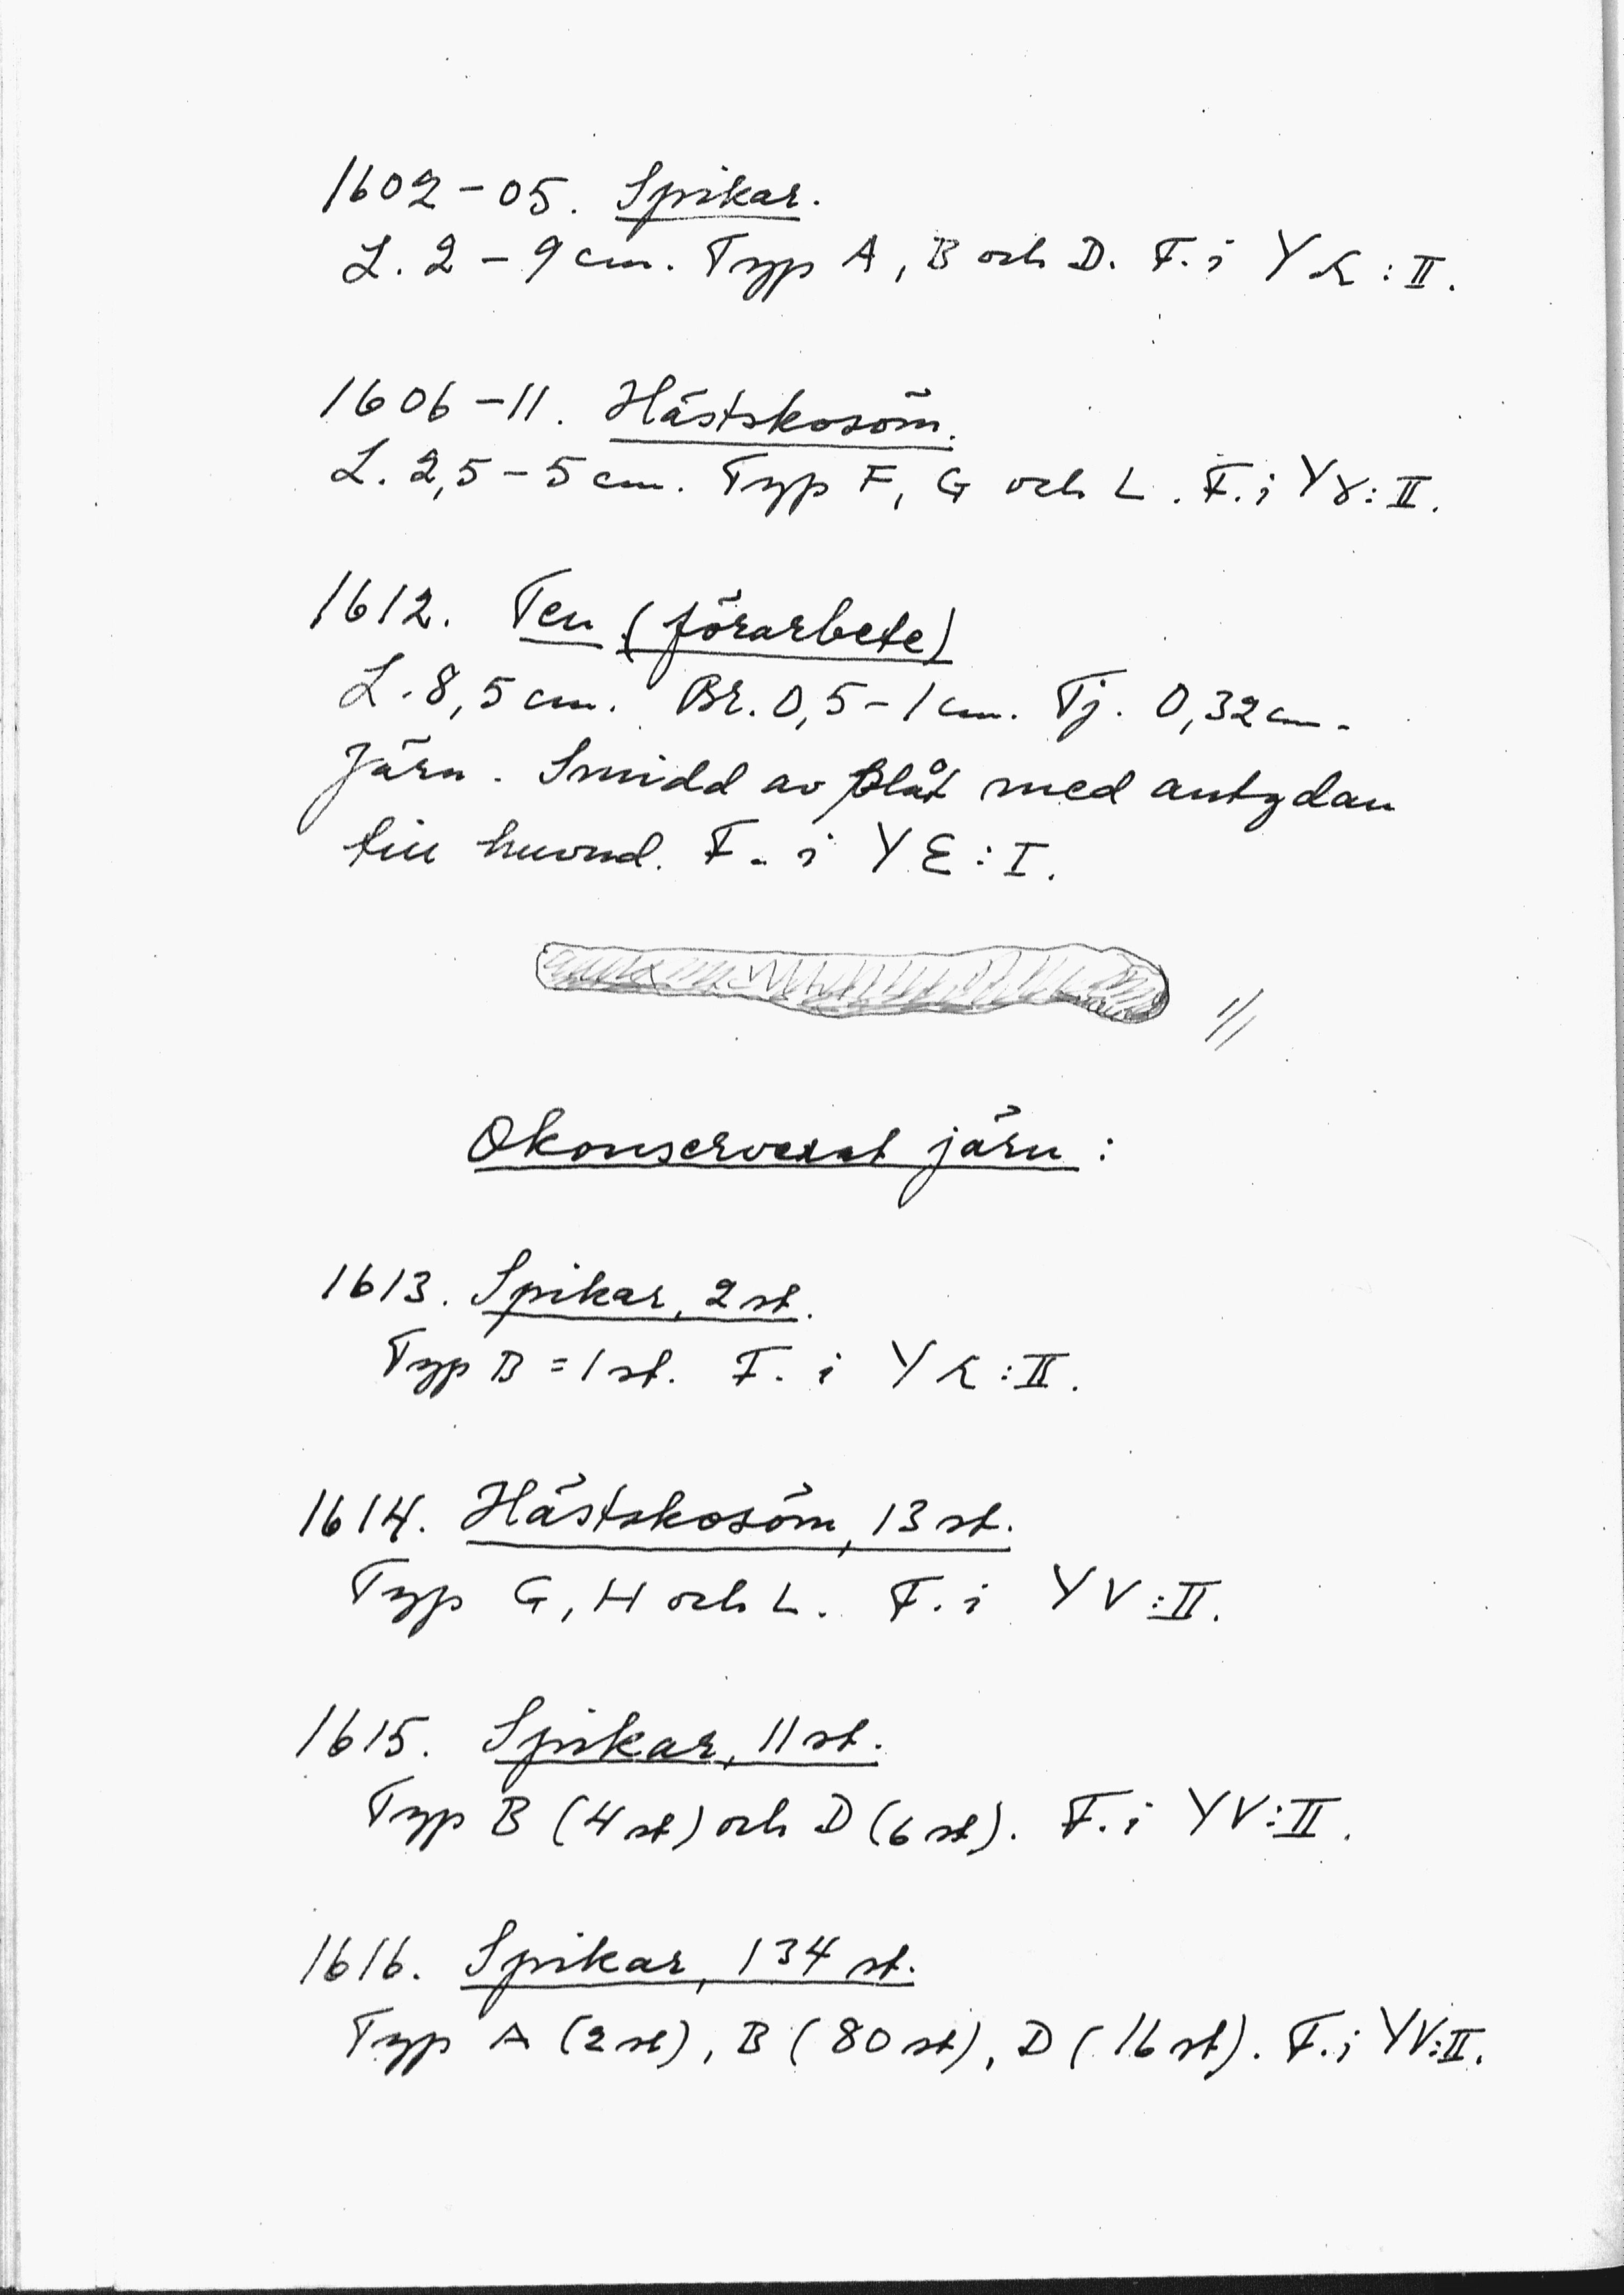 1602-05. Spikar.
L. 2 - 9 cm. Typ A, B och D. F. i YK:II.
1606-11. Hästskosöm.
L. 2,5 - 5 cm. Typ F, G och L. F. i Yγ:II.
1612. Ten (förarbete)
L. 8,5 cm. Br. 0,5 - 1 cm. Tj. 0,32 cm.
Järn. Smidd av plåt med antydan
till huvud. F. i YE:I.
1/1
Okonserverat järn:
1613. Spikar, 2 st.
Typ B = 1 st. F. i YK:II.
1614. Hästskosöm, 13 st.
Typ G, H och L. F. i YV:II.
1615. Spikar, 11 st.
Typ B (4 st) och D (6 st). F. i YV:II.
1616. Spikar, 134 st.
Typ A (2 st), B (80 st), D (16 st). F. i YV:II.